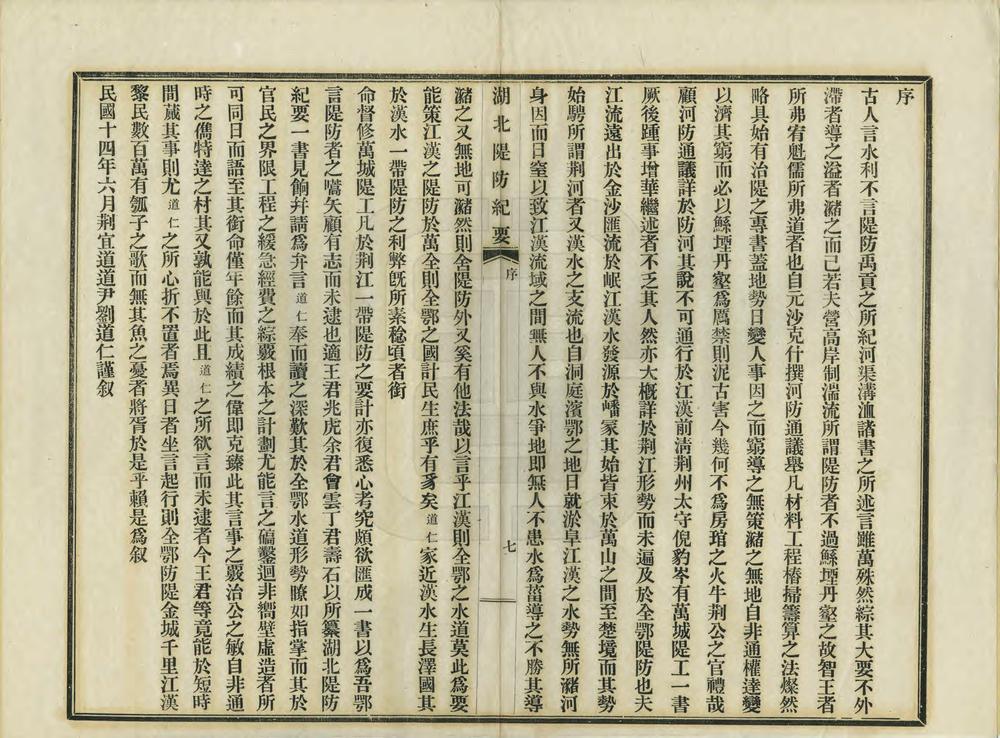 序
古人言水利不言隄防禹貢之所紀河渠溝洫諸書之所述言雖萬殊然綜其大要不外
滯者導之溢者瀦之而已若夫營高岸制湍流所謂隄防者不過鯀堙丹壑之故智王者
所弗宥魁儒所弗道者也自元沙克什撰河防通議舉凡材料工程樁掃籌算之法燦然
略具始有治隄之專書蓋地勢日變人事因之而窮導之無策瀦之無地自非通權達變
以濟其窮而必以鯀堙丹壑爲厲禁則泥古害今幾何不爲房琯之火牛荆公之官禮哉
顧河防通議詳於防河其說不可通行於江漢前淸荆州太守倪豹岑有萬城隄工一書
厥後踵事增華繼述者不乏其人然亦大槪詳於荆江形勢而未遍及於全鄂隄防也夫
江流遠出於金沙匯流於岷江漢水發源於嶓冢其始皆束於萬山之間至楚境而其勢
始騁所謂荆河者又漢水之支流也自洞庭濱鄂之地日就淤阜江漢之水勢無所瀦河
身因而日窒以致江漢流域之間無人不與水爭地即無人不患水爲菑導之不勝其導
湖北隄防紀要
序
七
瀦之又無地可瀦然則舍隄防外又奚有他法哉以言乎江漢則全鄂之水道莫此爲要
能策江漢之隄防於萬全則全鄂之國計民生庶乎有豸矣道仁家近漢水生長澤國其
於漢水一帶隄防之利弊旣所素稔頃者銜
命督修萬城隄工凡於荆江一帶隄防之要計亦復悉心考究頗欲匯成一書以爲吾鄂
言隄防者之嚆矢顧有志而未逮也適王君兆虎余君會雲丁君壽石以所纂湖北隄防
紀要一書見餉幷請爲弁言道仁奉而讀之深歎其於全鄂水道形勢瞭如指掌而其於
官民之界限工程之緩急經費之綜覈根本之計劃尤能言之碻鑿迴非嚮壁虛造者所
可同日而語至其銜命僅年餘而其成績之偉即克臻此其言事之覈治公之敏自非通
時之儁特達之材其又孰能與於此且道仁之所欲言而未逮者今王君等竟能於短時
間蕆其事則尤道仁之所心折不置者焉異日者坐言起行則全鄂防隄金城千里江漢
黎民數百萬有瓠子之歌而無其魚之憂者將胥於是乎賴是爲叙
民國十四年六月荆宜道道尹劉道仁謹叙